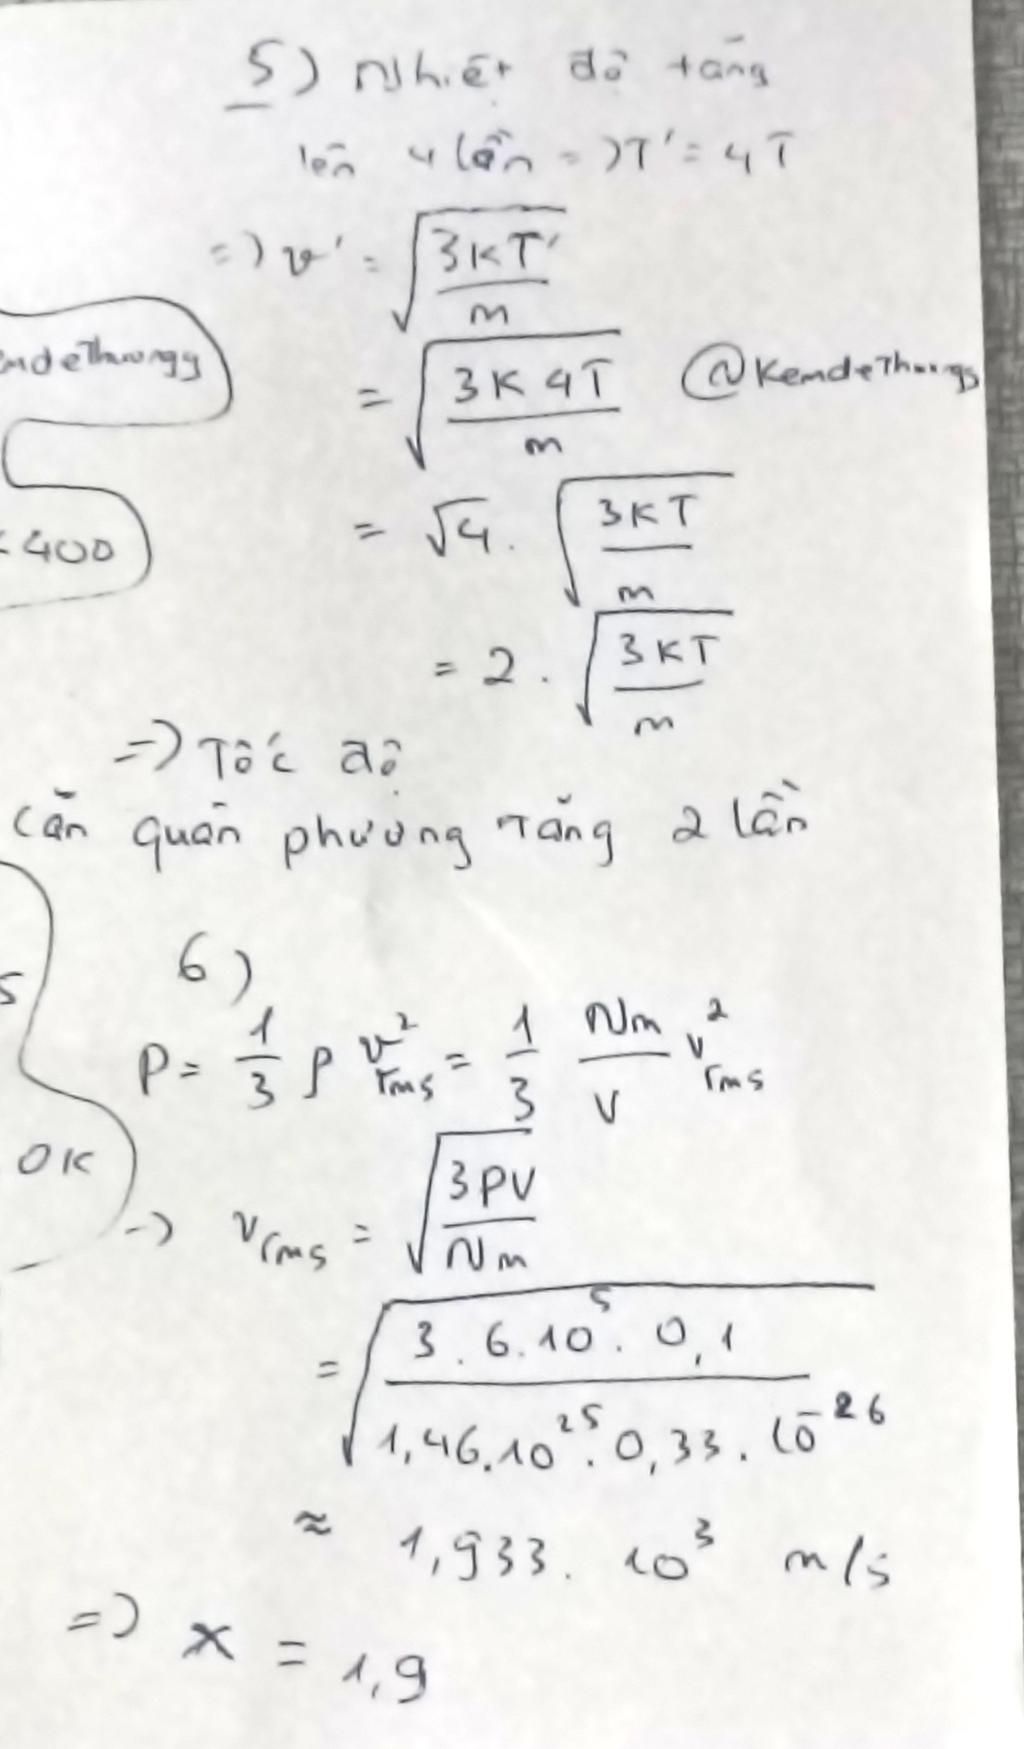 5) Nhiệt độ tăng
lên 4 lần => T' = 4T
=> v' = √(3kT'/m)
= √(3k4T/m) @KemdeThuongg
= √4 . √(3kT/m)
400
= 2 . √(3kT/m)
=> Tốc độ
căn quân phương tăng 2 lần
6)
P = 1/3 ρ v²rms = 1/3 Nm/V v²rms
0K
-> vrms = √(3PV/Nm)
= √(3.6.10⁵.0,1/1,46.10²⁵.0,33.10⁻²⁶)
≈ 1,933.10³ m/s
=> x = 1,9